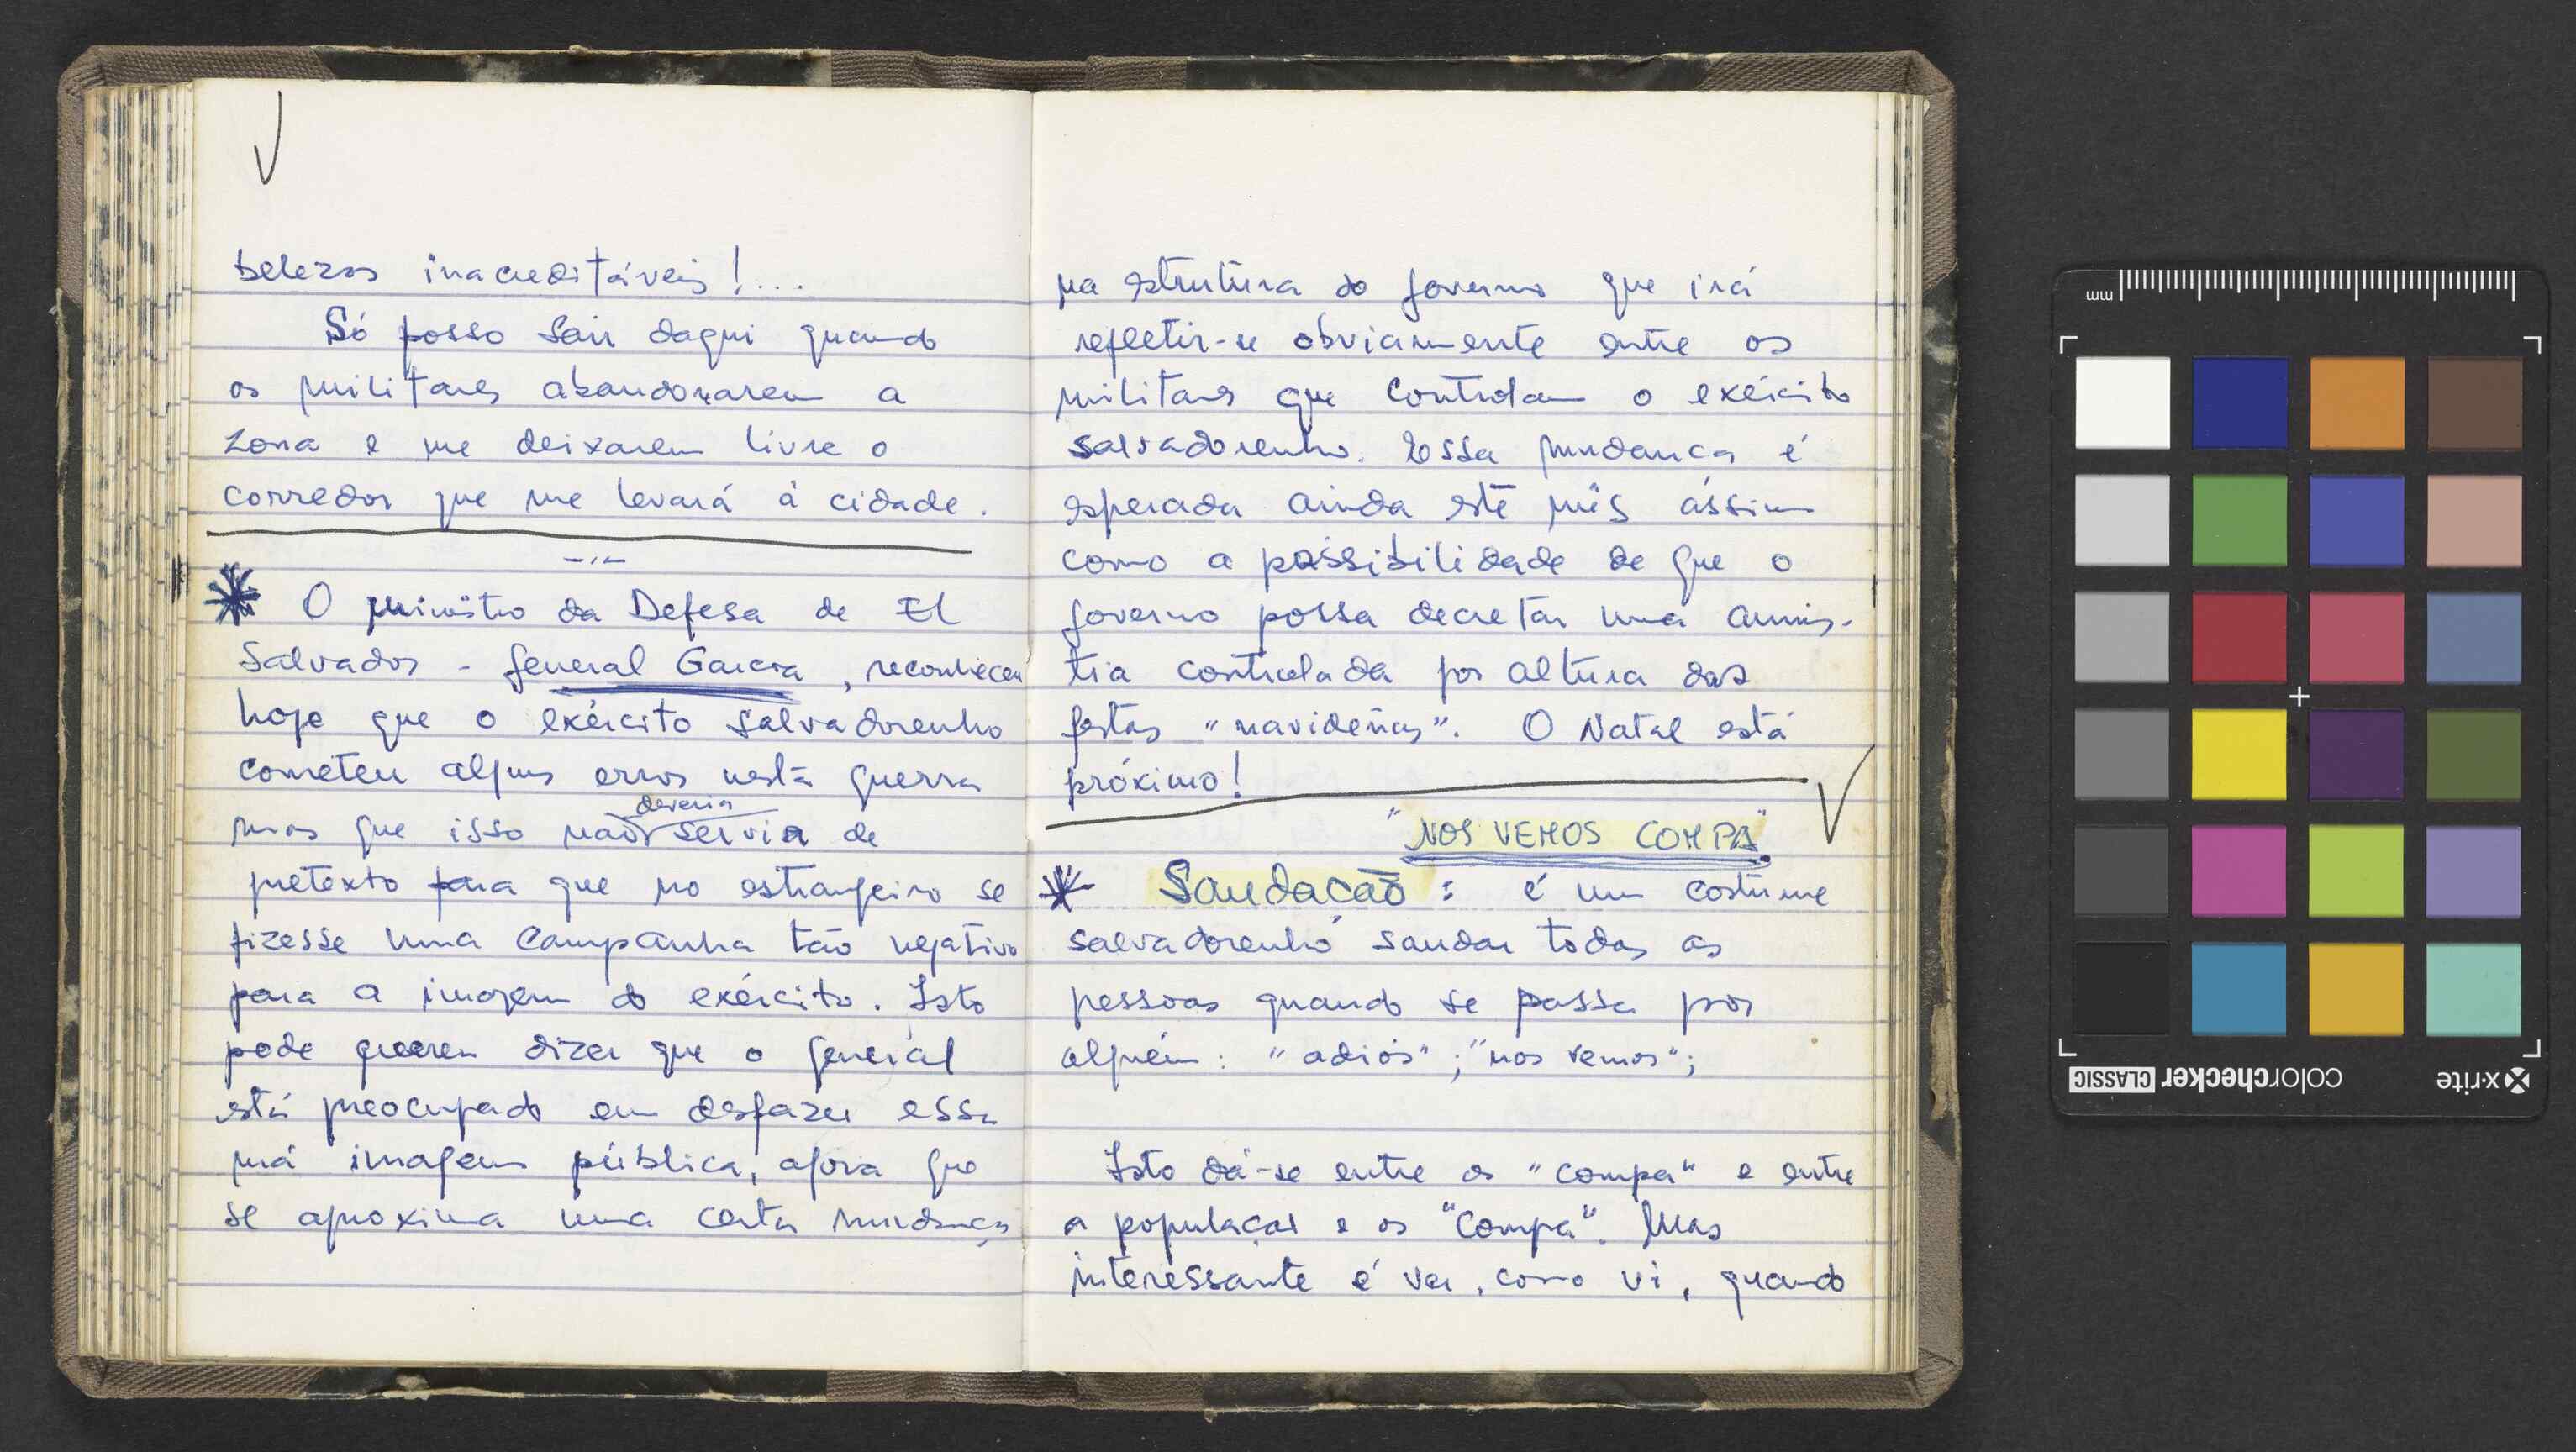 belezas inacreditáveis!...
Só posso sair daqui quando
os militares abandonarem a
zona e me deixarem livre o
corredor que me levará à cidade.
* O ministro da Defesa de El
Salvador - general Garcia, reconheceu
hoje que o exército salvadorenho
cometeu alguns erros nesta guerra
deveria
mas que isso não servia de
pretexto para que no estrangeiro se
fizesse uma campanha tão negativa
para a imagem do exército. Isto
pode querer dizer que o general
está preocupado em desfazer essa
má imagem pública, agora que
se aproxima uma certa mudança
na estrutura do governo que irá
refletir-se obviamente entre os
militares que controlam o exército
salvadorenho. Essa mudança é
esperada ainda este mês assim
como a possibilidade de que o
governo possa decretar uma amnis-
tia controlada por altura das
festas "navideñas". O Natal está
próximo!
"NOS VEMOS COMPA"
* Saudação: é um costume
salvadorenho saudar todas as
pessoas quando se passa por
alguém: "adiós"; "nos vemos";
Isto dá-se entre os "compa" e entre
a população e os "compa". Mas
interessante é ver, como vi, quando
mm
x-rite
colorchecker CLASSIC